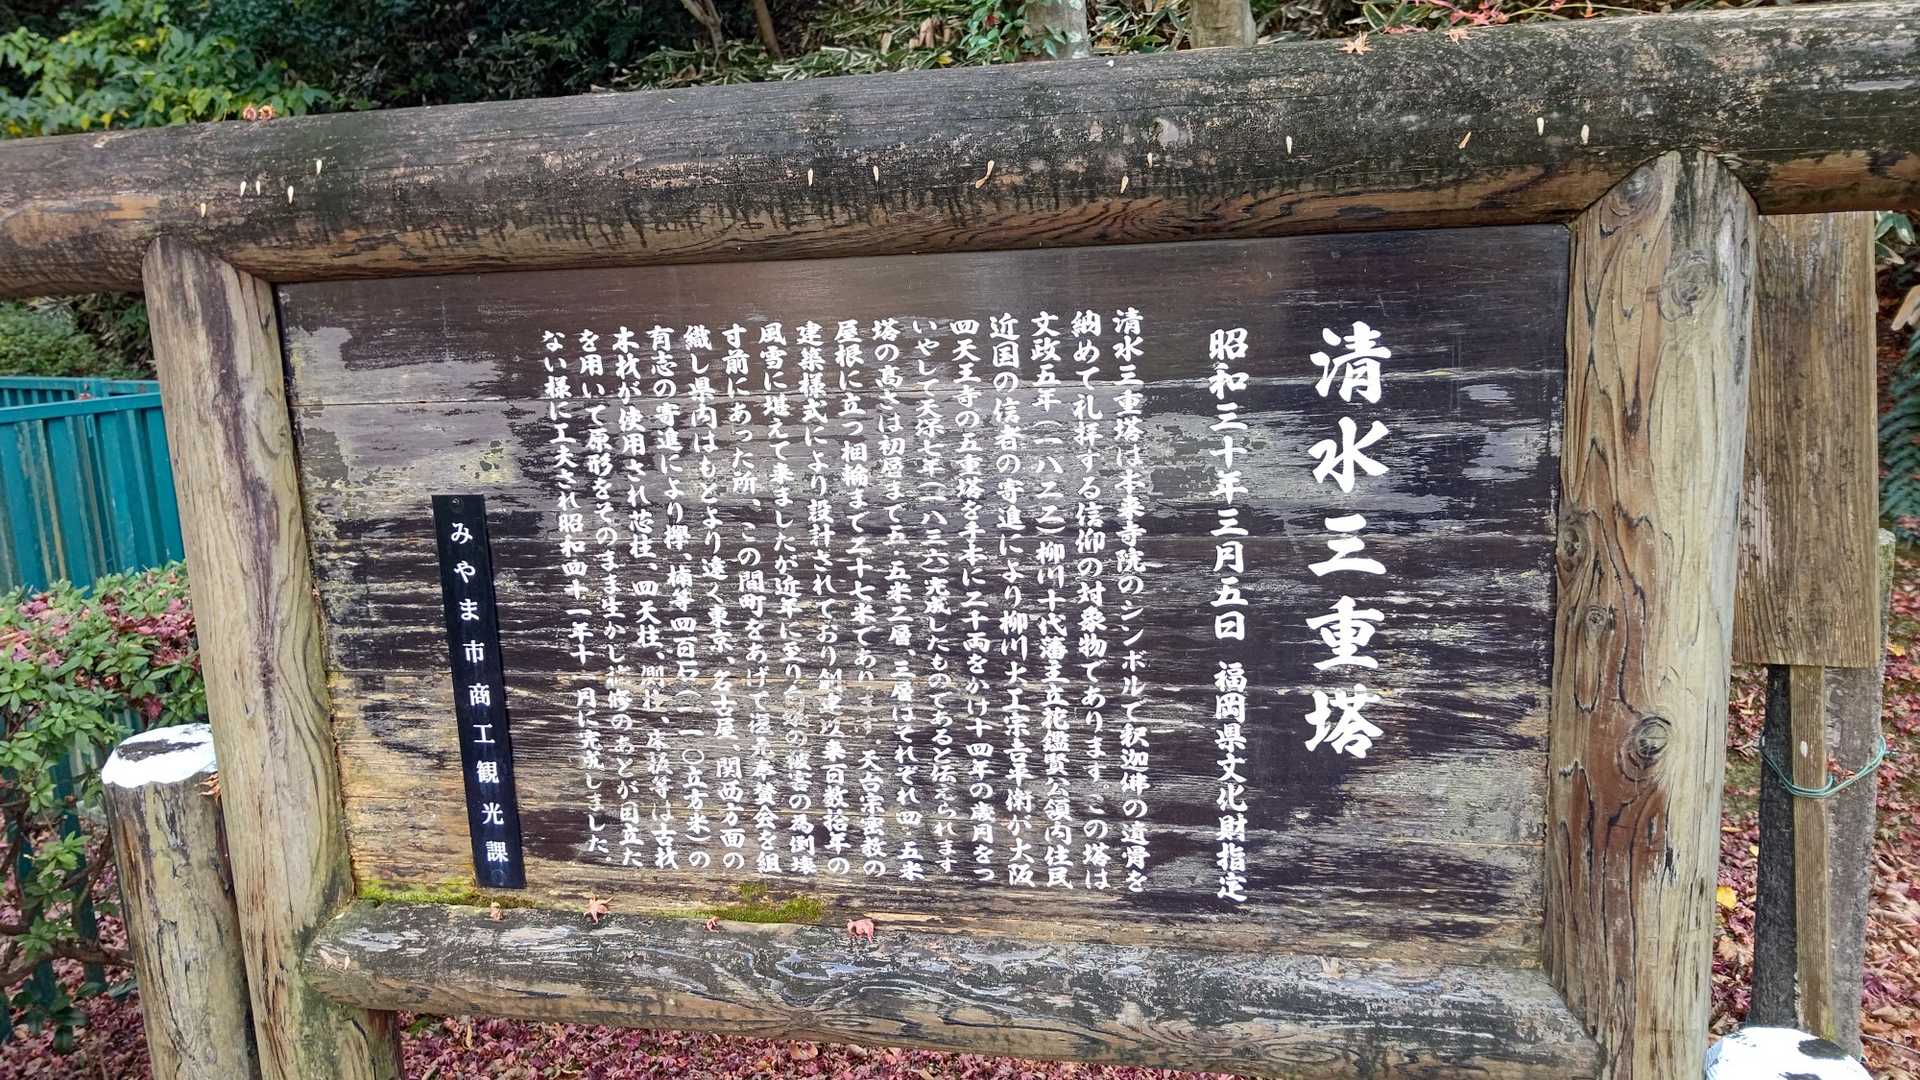 清水三重塔
昭和三十年三月五日 福岡県文化財指定
清水三重塔は本来寺院のシンボルで釈迦佛の遺骨を
納めて礼拝する信仰の対象物であります。この塔は
文政五年(一八二二)柳川十代藩主立花鑑賢公領内住民
近国の信者の寄進により柳川大工宗吉平衛が大阪
四天王寺の五重塔を手本に二千両をかけ十四年の歳月をつ
いやして天保七年(一八三六)完成したものであると伝えられます
塔の高さは初層まで五・五米二層、三層はそれぞれ四・五米
屋根に立つ相輪まで二十七米であります。天台宗密教の
建築様式により設計されており創建以来百数拾年の
風雪に堪えて来ましたが近年に至り白蟻の被害の為倒壊
寸前にあった所、この間町をあげて復元奉賛会を組
織し県内はもとより遠く東京、名古屋、関西方面の
有志の寄進により欅、楠等四百石(一一〇立方米)の
木材が使用され芯柱、四天柱、側柱、床板等は古材
を用いて原形をそのまま生かし補修のあとが目立た
ない様に工夫され昭和四十一年十一月に完成しました。
みやま市商工観光課